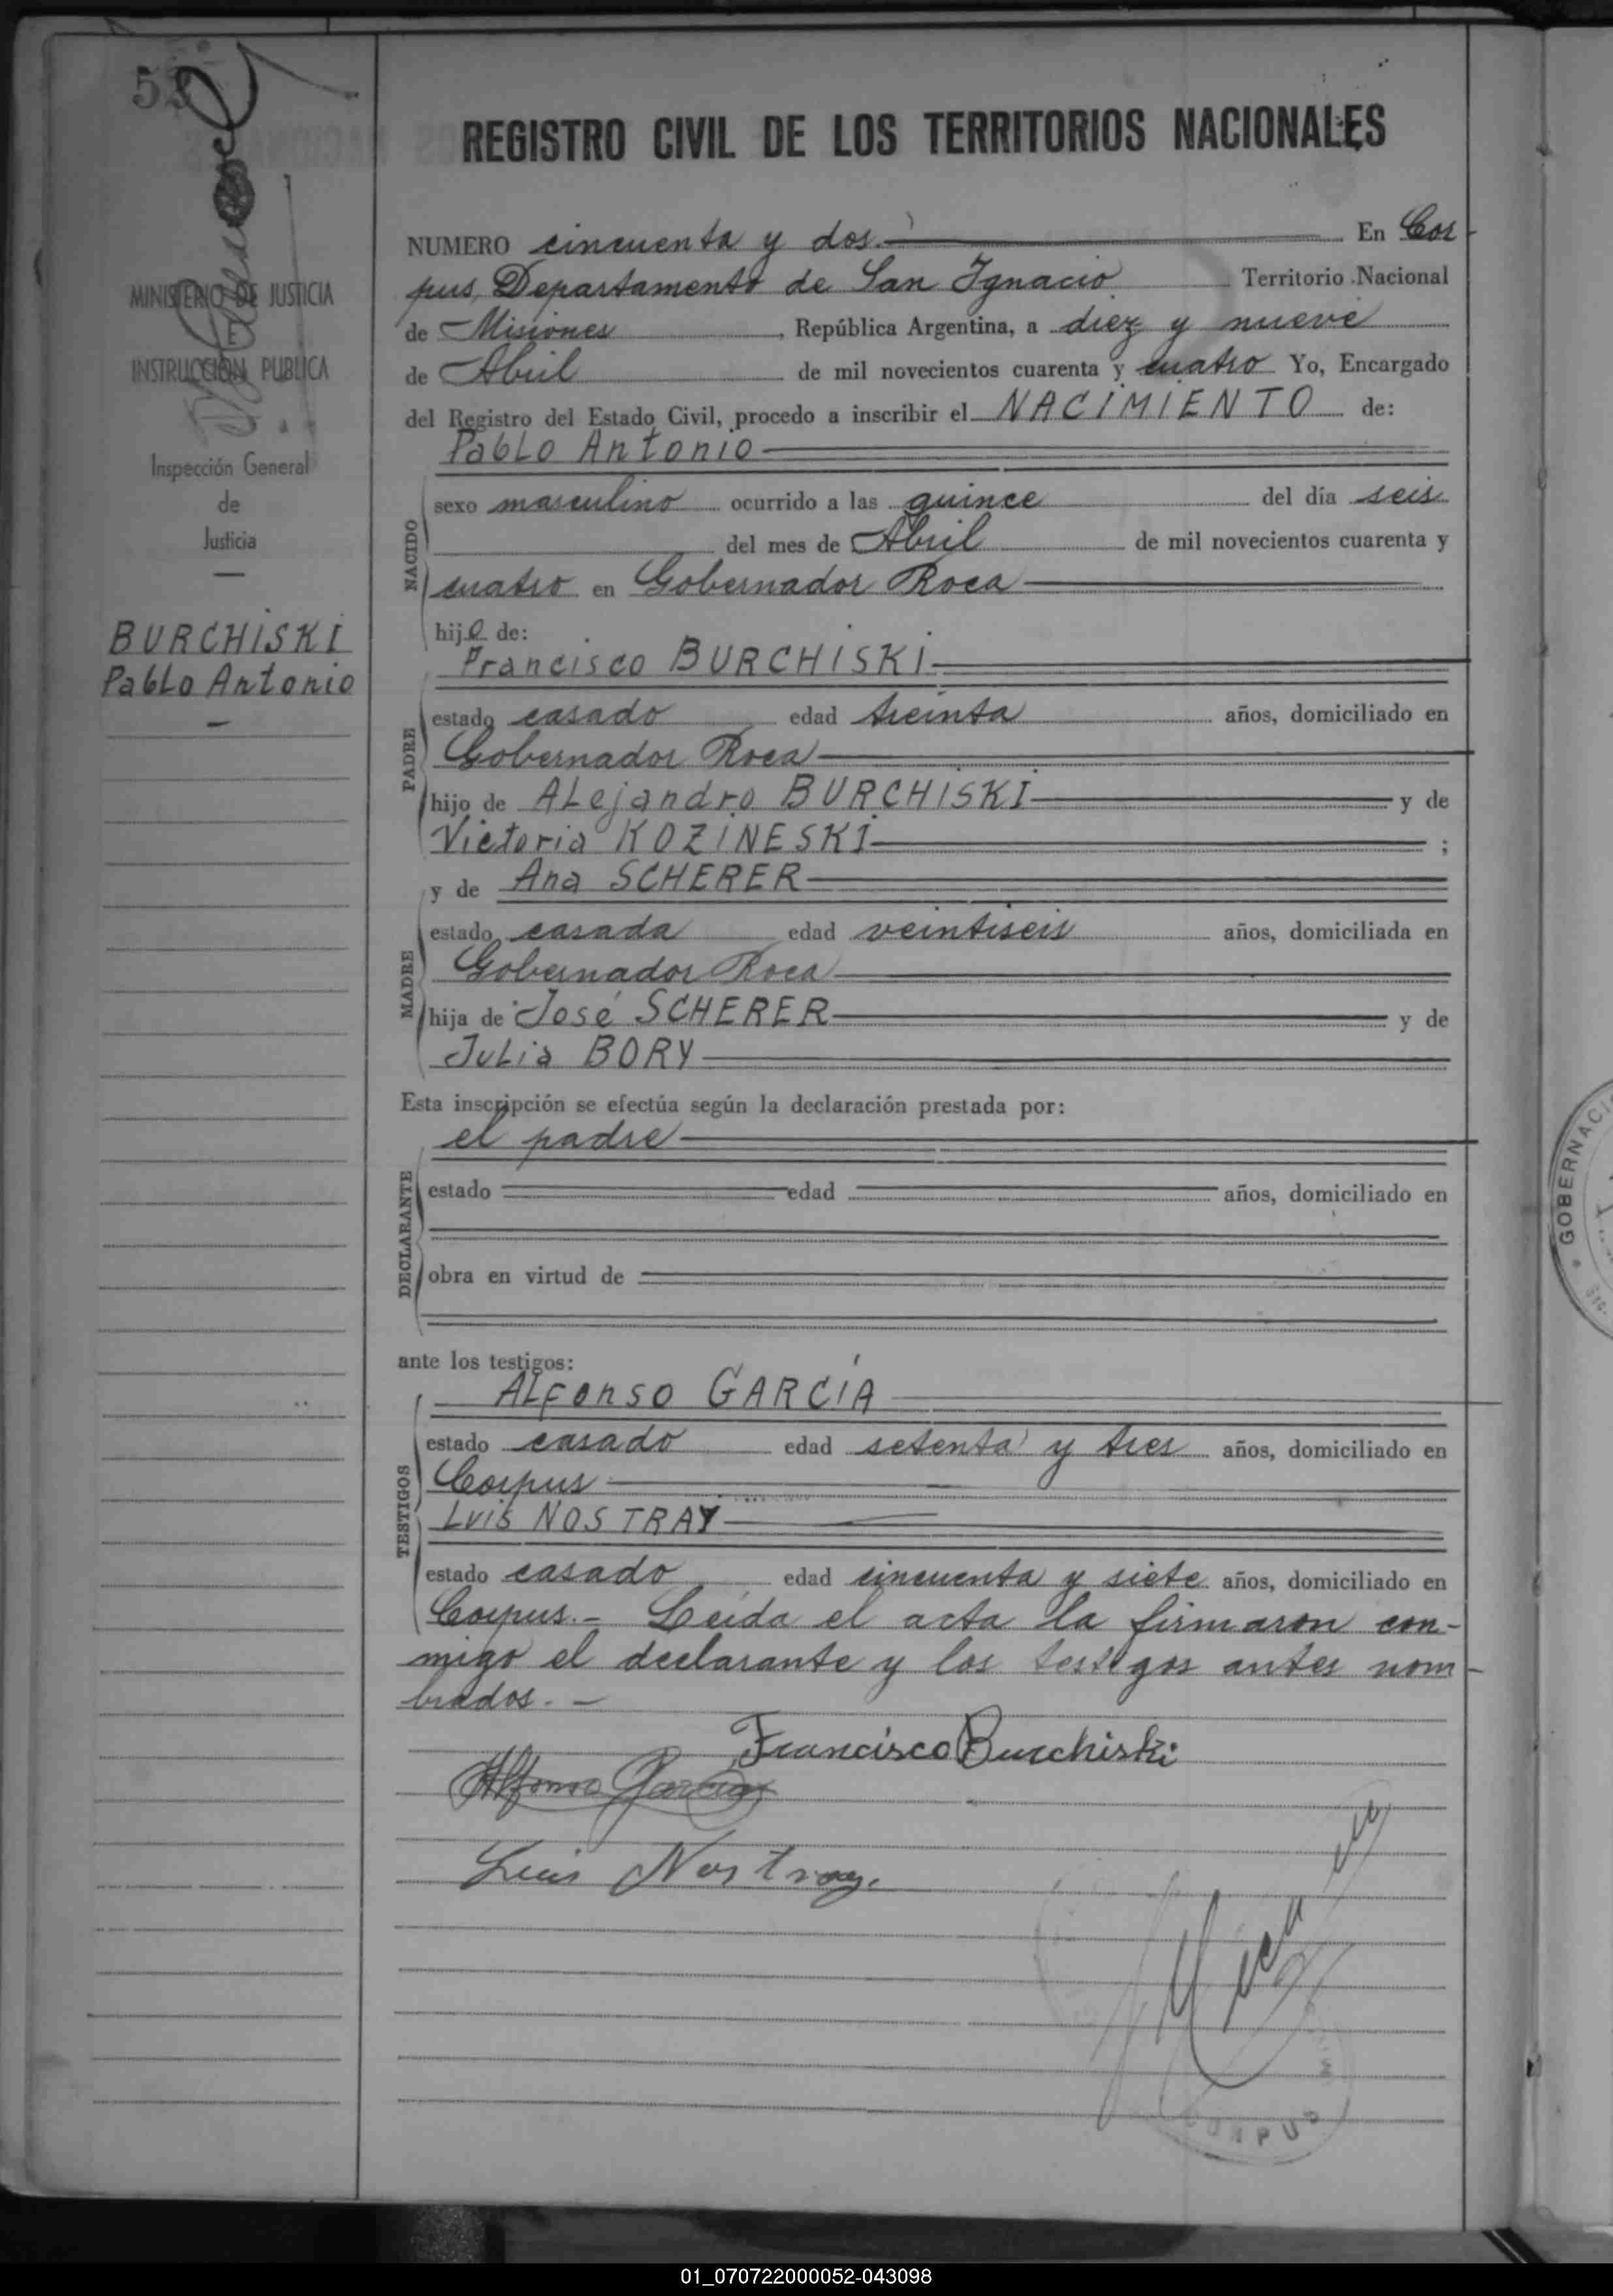 52
MINISTERIO DE JUSTICIA
E
INSTRUCCION PUBLICA
Inspección General
de
Justicia
BURCHISKI
Pablo Antonio
REGISTRO CIVIL DE LOS TERRITORIOS NACIONALES
NUMERO cincuenta y dos.- En Cor-
pus, Departamento de San Ignacio Territorio Nacional
de Misiones, República Argentina, a diez y nueve
de Abril de mil novecientos cuarenta y cuatro Yo, Encargado
del Registro del Estado Civil, procedo a inscribir el NACIMIENTO de:
Pablo Antonio
NACIDO
sexo masculino ocurrido a las quince del día seis
del mes de Abril de mil novecientos cuarenta y
cuatro en Gobernador Roca
hijo de:
Francisco BURCHISKI
PADRE
estado casado edad treinta años, domiciliado en
Gobernador Roca
hijo de Alejandro BURCHISKI y de
Victoria KOZINESKI ;
y de Ana SCHERER
MADRE
estado casada edad veintiseis años, domiciliada en
Gobernador Roca
hija de José SCHERER y de
Julia BORY
Esta inscripción se efectúa según la declaración prestada por:
el padre
DECLARANTE
estado edad años, domiciliado en
obra en virtud de
ante los testigos:
Alfonso GARCÍA
TESTIGOS
estado casado edad setenta y tres años, domiciliado en
Corpus
Luis NOSTRAY
estado casado edad cincuenta y siete años, domiciliado en
Corpus.- Leída el acta la firmaron con-
migo el declarante y los testigos antes nom-
brados.-
Francisco Burchiski
Alfonso Garcia
Luis Nostray.
CORPUS
GOBERNACI
01_070722000052-043098